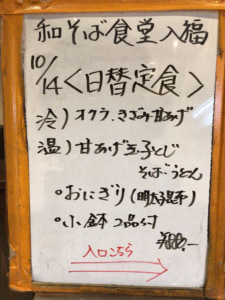 和そば食堂入福
10/14<日替定食>
冷)オクラ、きざみ甘あげ
温)甘あげ玉子とじ
そば・うどん
・おにぎり(明太昆布)
・小鉢2品付
¥880.-
入口こちら